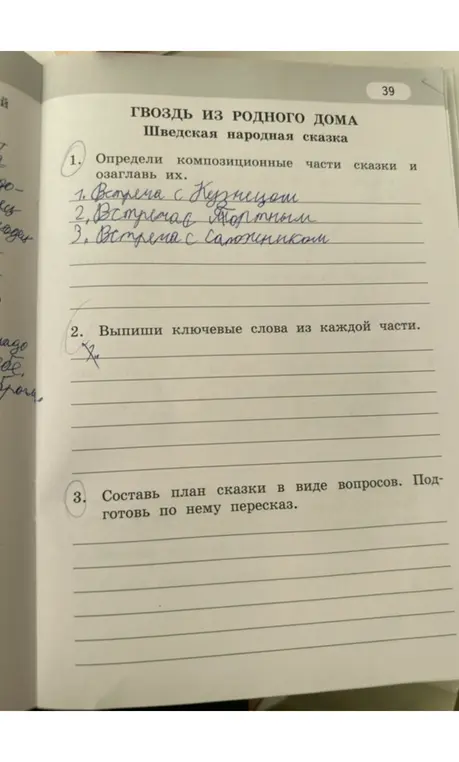 39
ГВОЗДЬ ИЗ РОДНОГО ДОМА
Шведская народная сказка
1. Определи композиционные части сказки и
озаглавь их.
1. Встреча с Кузнецом
2. Встреча с Портным
3. Встреча с сапожником
2. Выпиши ключевые слова из каждой части.
3. Составь план сказки в виде вопросов. Под-
готовь по нему пересказ.